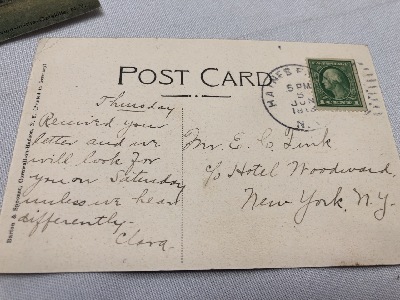 POST CARD
Thursday
Received your
letter and we
will look for
you on Saturday
unless we hear
differently-
Clara-
HAINES
5 PM
JUN
N.
1 CENT 1
Mr. E. C. Link
c/o Hotel Woodward,
New York, N.Y.